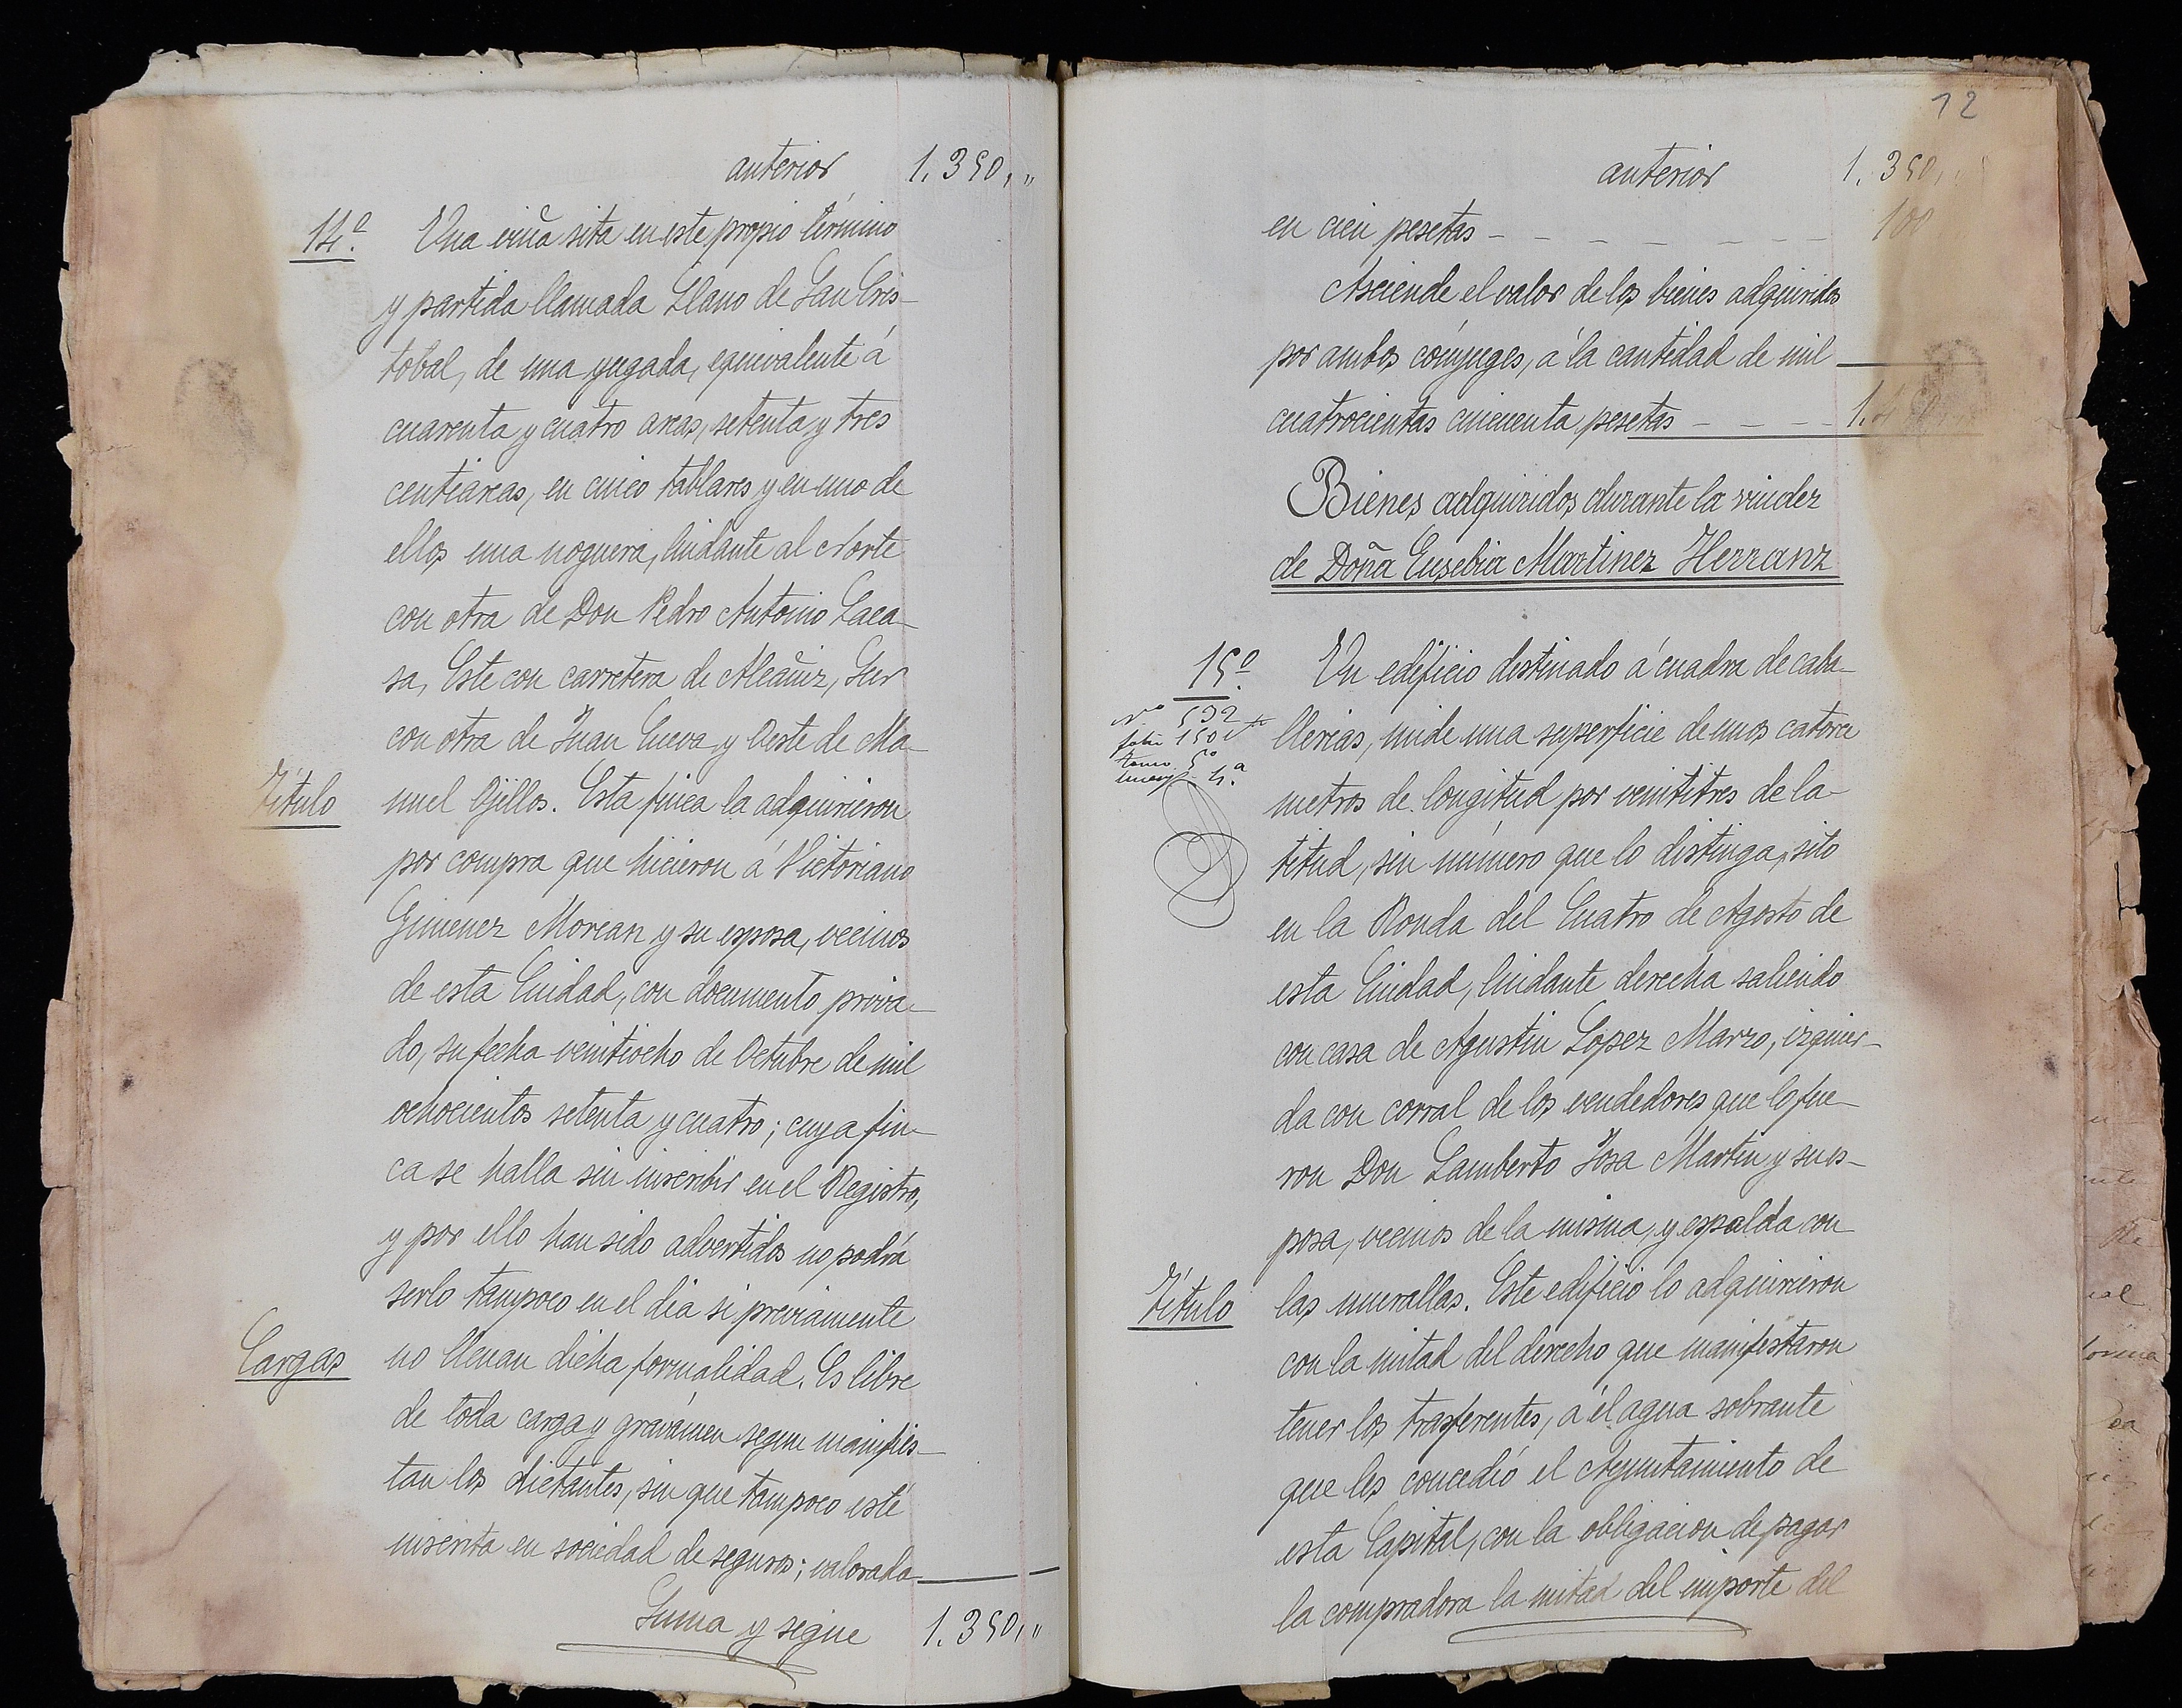 anterior 1.350,"
14.a Una viña sita en este propio término
y partida llamada Llano de San Cris-
tobal, de una yugada, equivalente á
cuarenta y cuatro areas, setenta y tres
centiáreas, en cinco tablares y en uno de
ellos una noguera, lindante al Norte
con otra de Don Pedro Antonio Laca-
sa, Este con carretera de Alcañiz, Sur
con otra de Juan Cueva y Oeste de Ma-
Título nuel Gillos. Esta finca la adquirieron
por compra que hicieron á Victoriano
Gimenez Morean y su esposa, vecinos
de esta Ciudad, con documento priva-
do, su fecha veintiocho de Octubre de mil
ochocientos setenta y cuatro; cuya fin-
ca se halla sin inscribir en el Registro,
y por ello han sido advertidos no podrá
serlo tampoco en el dia si previamente
Cargas no llenan dicha formalidad. Es libre
de toda carga y gravámen segun manifies-
tan los dictantes, sin que tampoco esté
inscrita en sociedad de seguros; valorada
Suma y sigue 1.350,"
12
anterior 1.350,"
en cien pesetas - - - - - - - 100
Asciende el valor de los bienes adquiridos
por ambos cónyuges, á la cantidad de mil
cuatrocientas cincuenta pesetas - - - - 1.450
Bienes adquiridos durante la viudez
de Doña Eusebia Martinez Herranz
15.o Un edificio destinado á cuadra de caba-
nº 592
folio 150
tomo 5º
4.a
llerias, mide una superficie de unos catorce
metros de longitud por veintitres de la-
titud, sin número que lo distinga, sito
en la Ronda del Cuatro de Agosto de
esta Ciudad, lindante derecha saliendo
con casa de Agustin Lopez Marzo, izquier-
da con corral de los vendedores que lo fue-
ron Don Lamberto Josa Martin y su es-
posa, vecinos de la misma, y espalda con
Título las murallas. Este edificio lo adquirieron
con la mitad del derecho que manifestaron
tener los trasferentes, á el agua sobrante
que les concedió el Ayuntamiento de
esta Capital, con la obligacion de pagar
la compradora la mitad del importe del